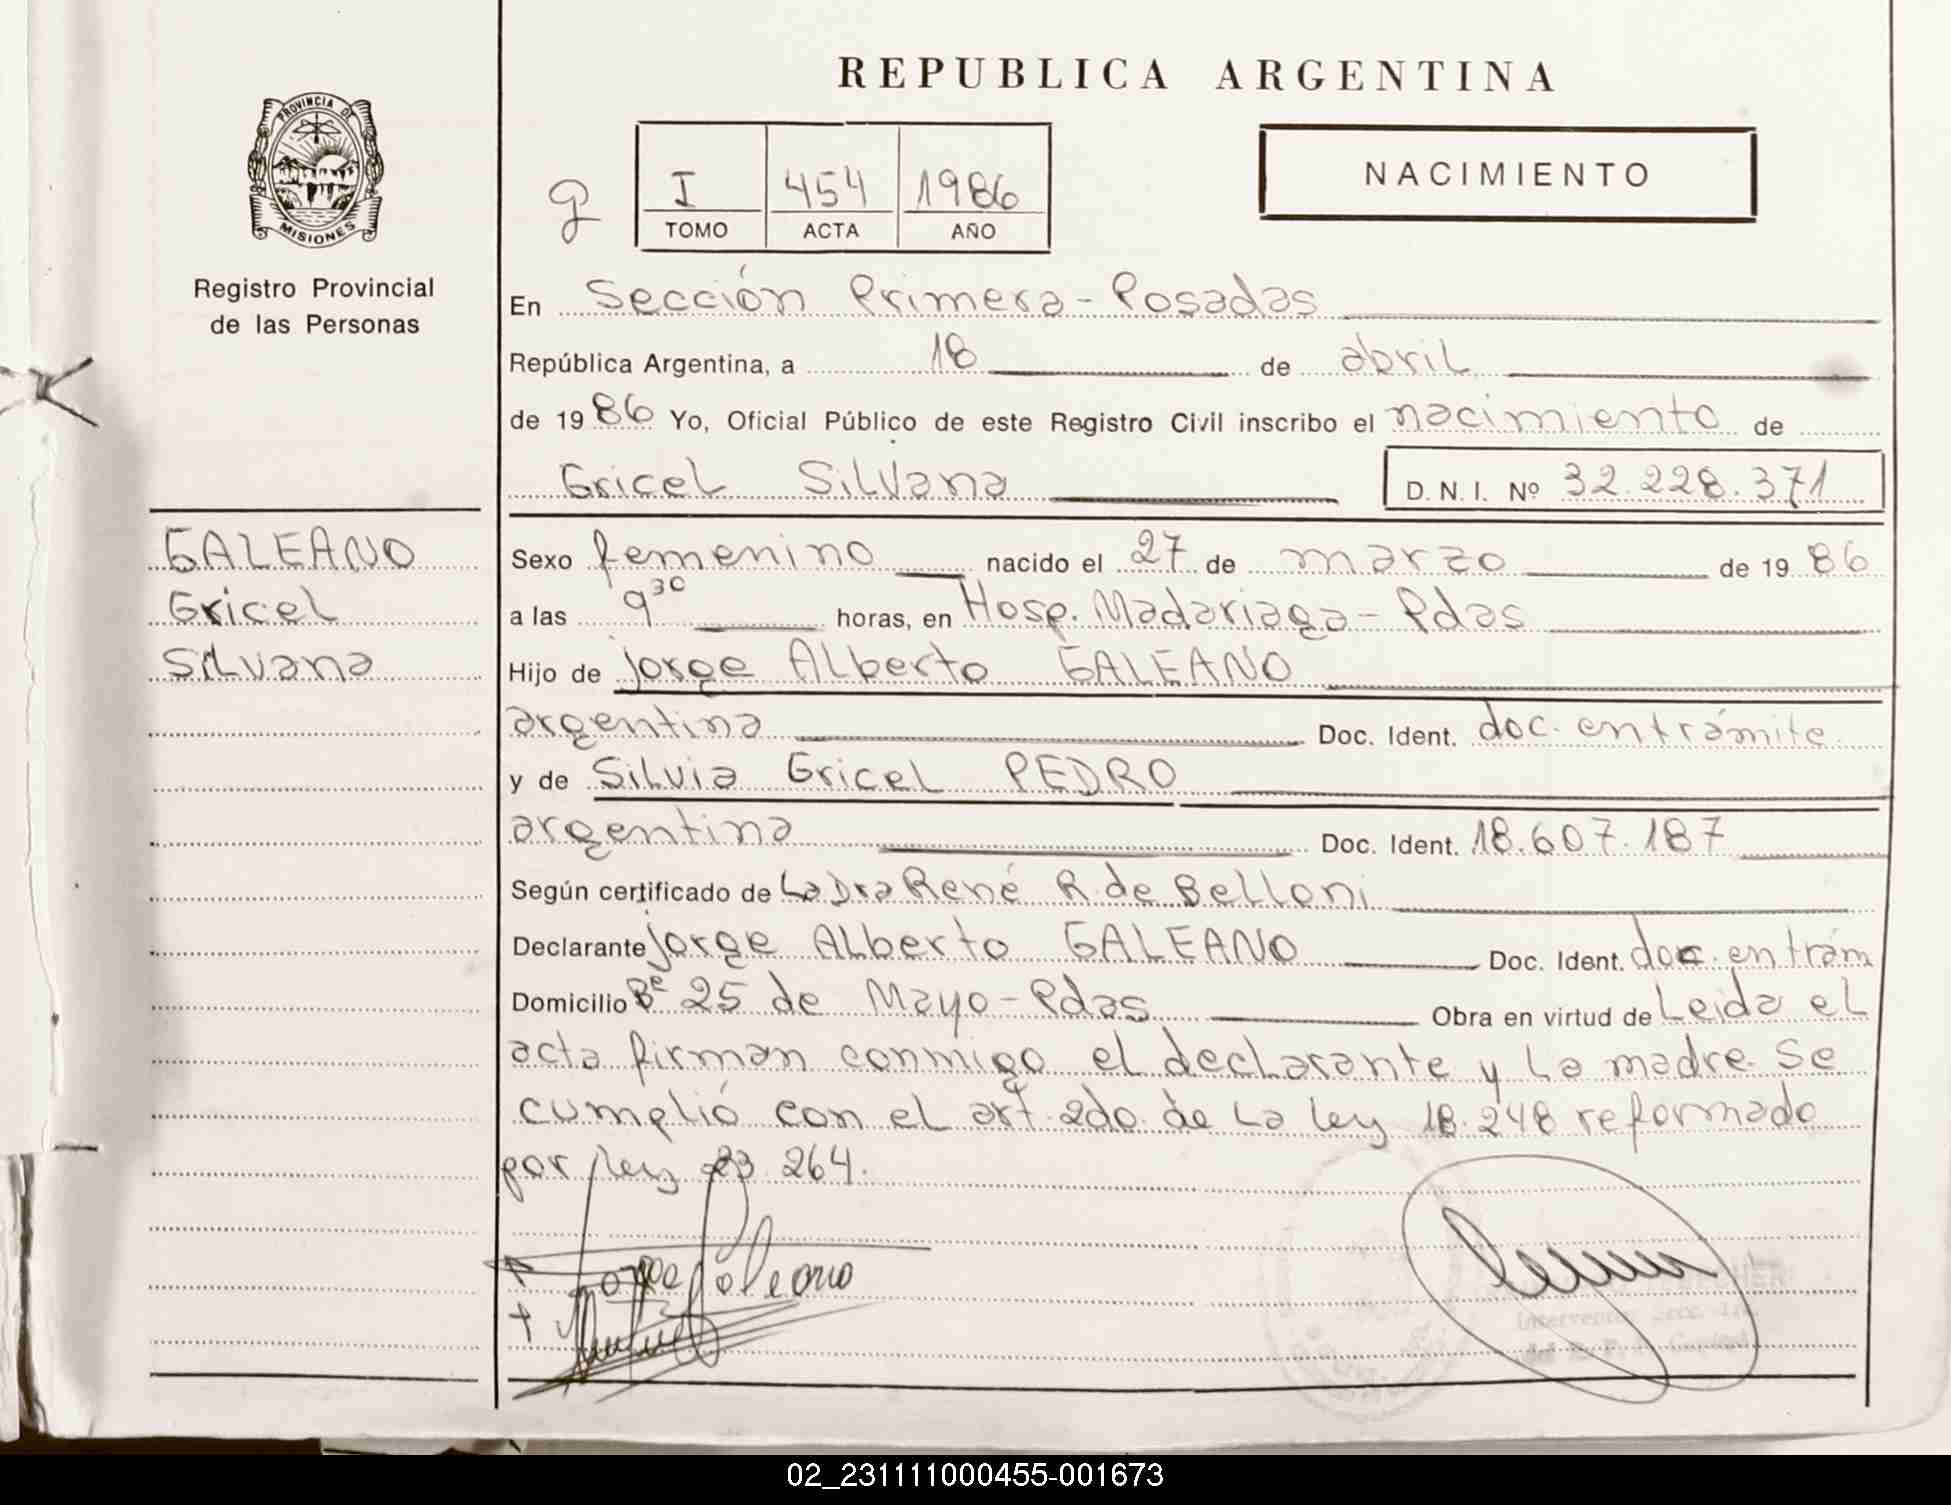 REPUBLICA ARGENTINA
PROVINCIA DE
MISIONES
Registro Provincial
de las Personas
g
I 454 1986
TOMO ACTA AÑO
NACIMIENTO
En Sección Primera - Posadas
República Argentina, a 18 de abril
de 1986 Yo, Oficial Público de este Registro Civil inscribo el nacimiento de
Gricel Silvana D.N.I. Nº 32.228.371
GALEANO
Gricel
Silvana
Sexo femenino nacido el 27 de marzo de 1986
a las 9 30 horas, en Hosp. Madariaga - Pdas
Hijo de Jorge Alberto GALEANO
argentina Doc. Ident. doc. en trámite
y de Silvia Gricel PEDRO
argentina Doc. Ident. 18.607.187
Según certificado de La Dra René R. de Belloni
Declarante Jorge Alberto GALEANO Doc. Ident. doc. en trám
Domicilio Bº 25 de Mayo - Pdas Obra en virtud de Leida el
acta firman conmigo el declarante y la madre. Se
cumplió con el art. 2do. de La Ley 18.248 reformado
por ley 23.264.
Jorge Galeano
02_231111000455-001673